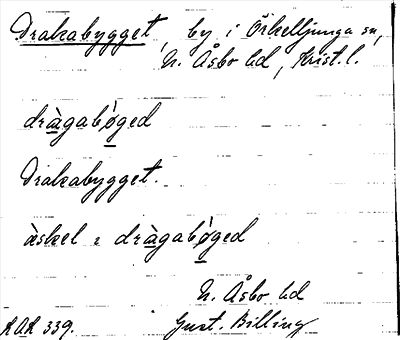 Drakabygget, by i Örkelljunga sn,
N. Åsbo hd, Krist. l.
dràgabǿ̀ged
Drakabygget.
àskel i dràgabǿ̀ged
N. Åsbo hd
RAÄ 339. Gust. Billing